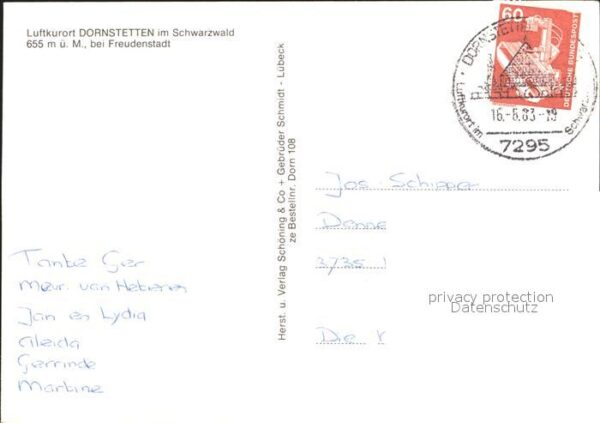 Luftkurort DORNSTETTEN im Schwarzwald
655 m ü. M., bei Freudenstadt
60
DEUTSCHE BUNDESPOST
DORNSTETTEN
Luftkurort im
16.-6.83-19
7295
Herst. u. Verlag Schöning & Co + Gebrüder Schmidt - Lübeck
ze Bestellnr. Dorn 108
Jos Schipper
3735
privacy protection
Datenschutz
Die
Tante Ger
Mevr. van
Jan en Lydia
Aleida
Gerrinde
Martine